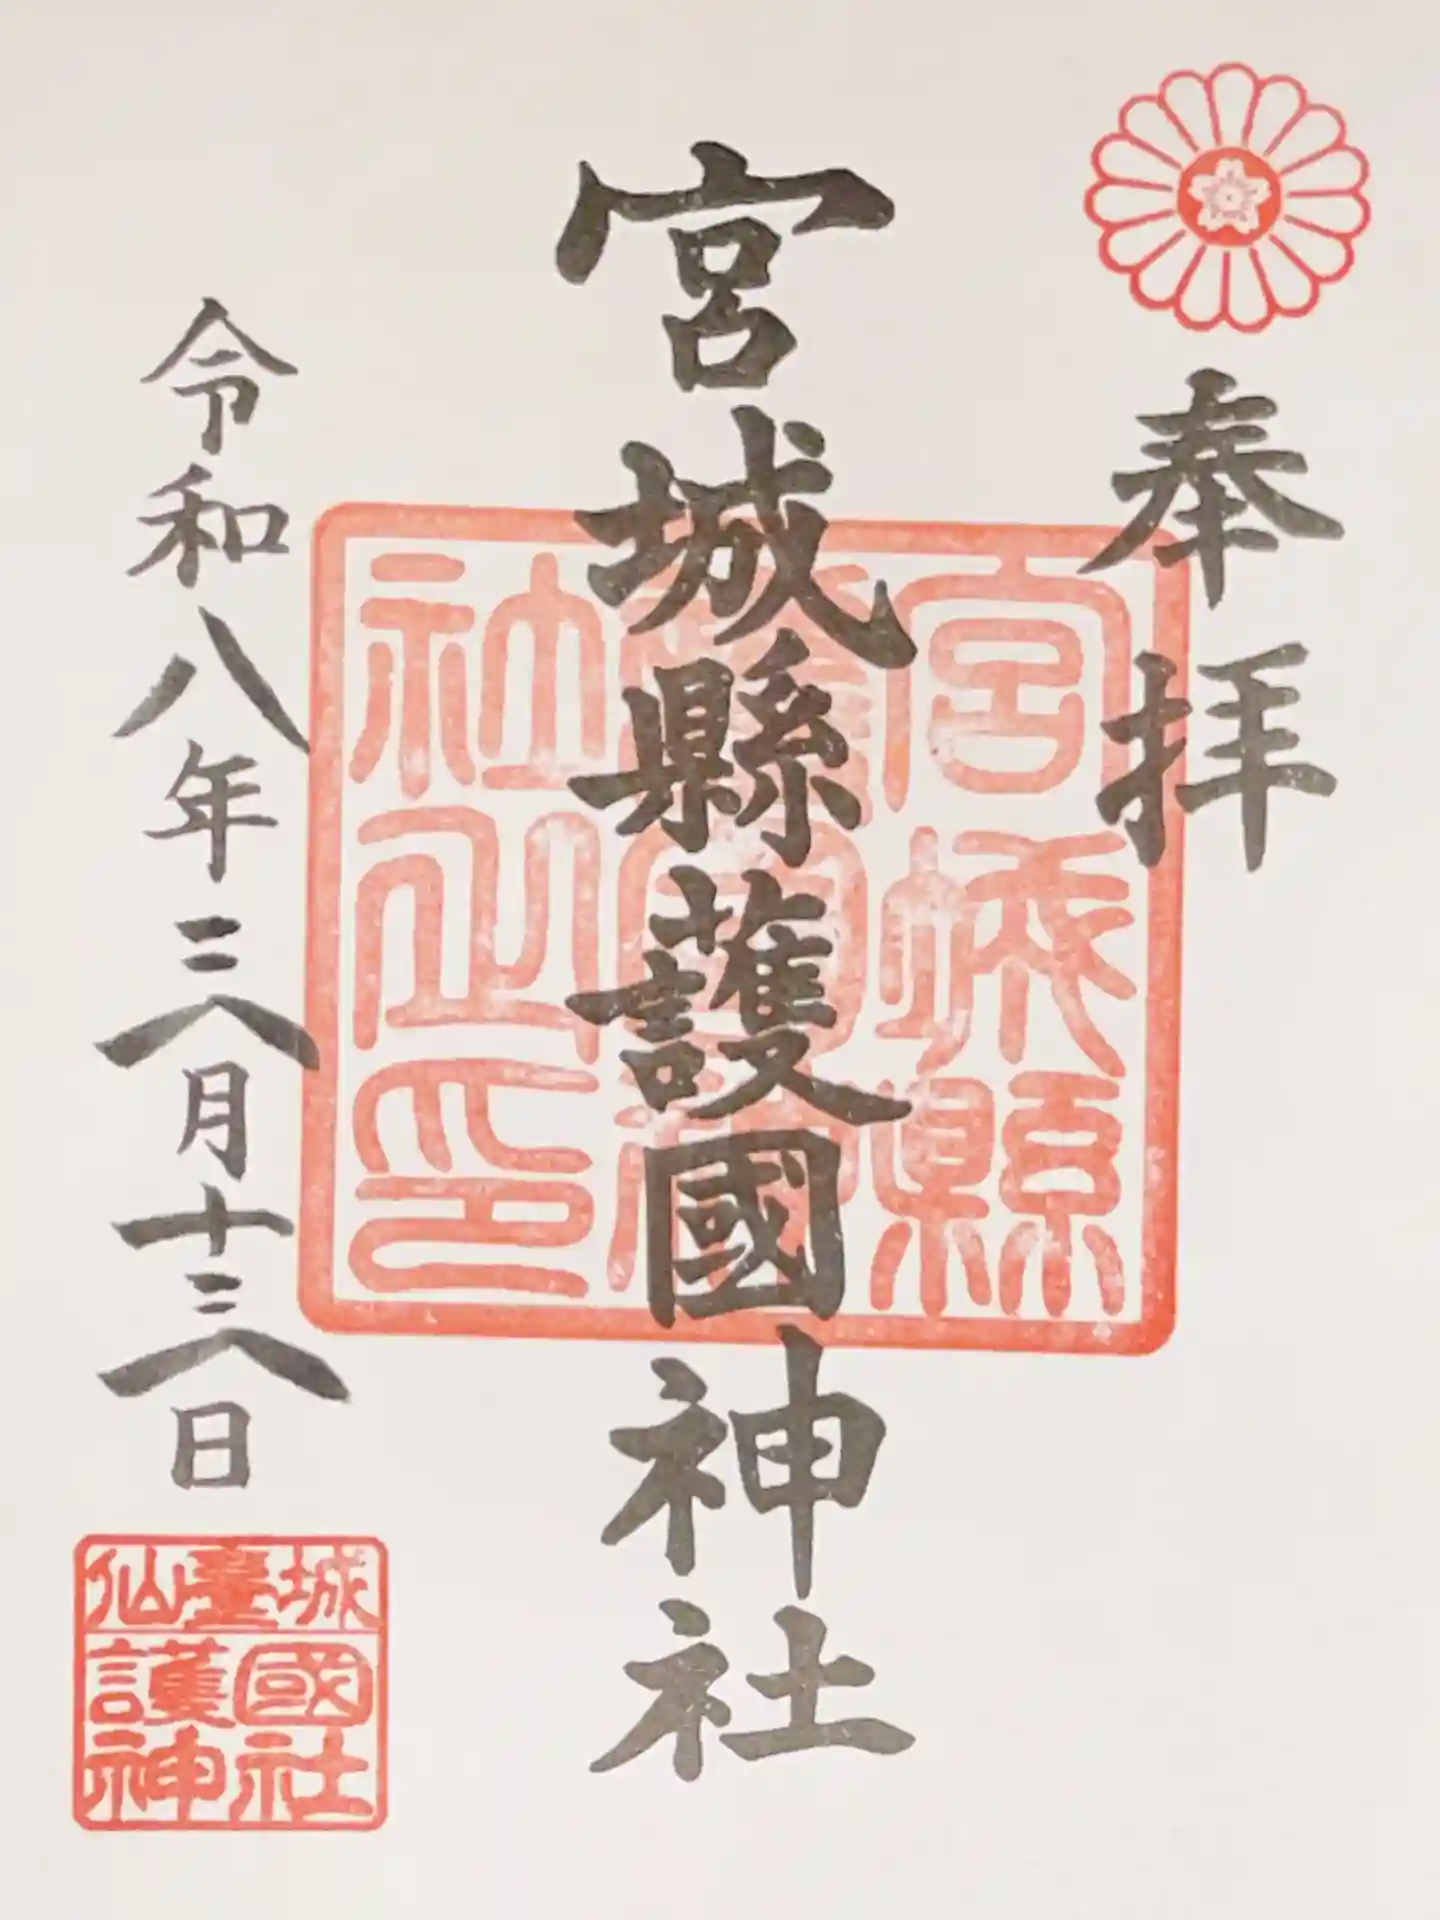 奉拝
宮城縣護國神社
宮城縣
護國神
社之印
令和八年三月十三日
仙臺城
護國
神社